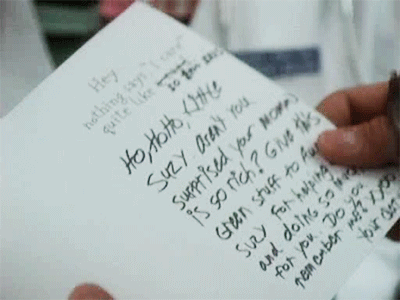 Hey,
nothing says "I care"
quite like
Ho, HoHo, Little
Suzy aren't you
surprised your mommy
is so rich? Give this
Green stuff to Aunt
Suzy for helping
and doing so much
for you. Do you
remember me?
your